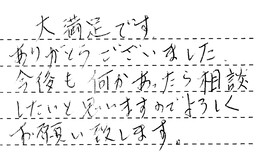 大満足です
ありがとうございました.
今後も何かあったら相談
したいと思いますのでよろしく
お願い致します。